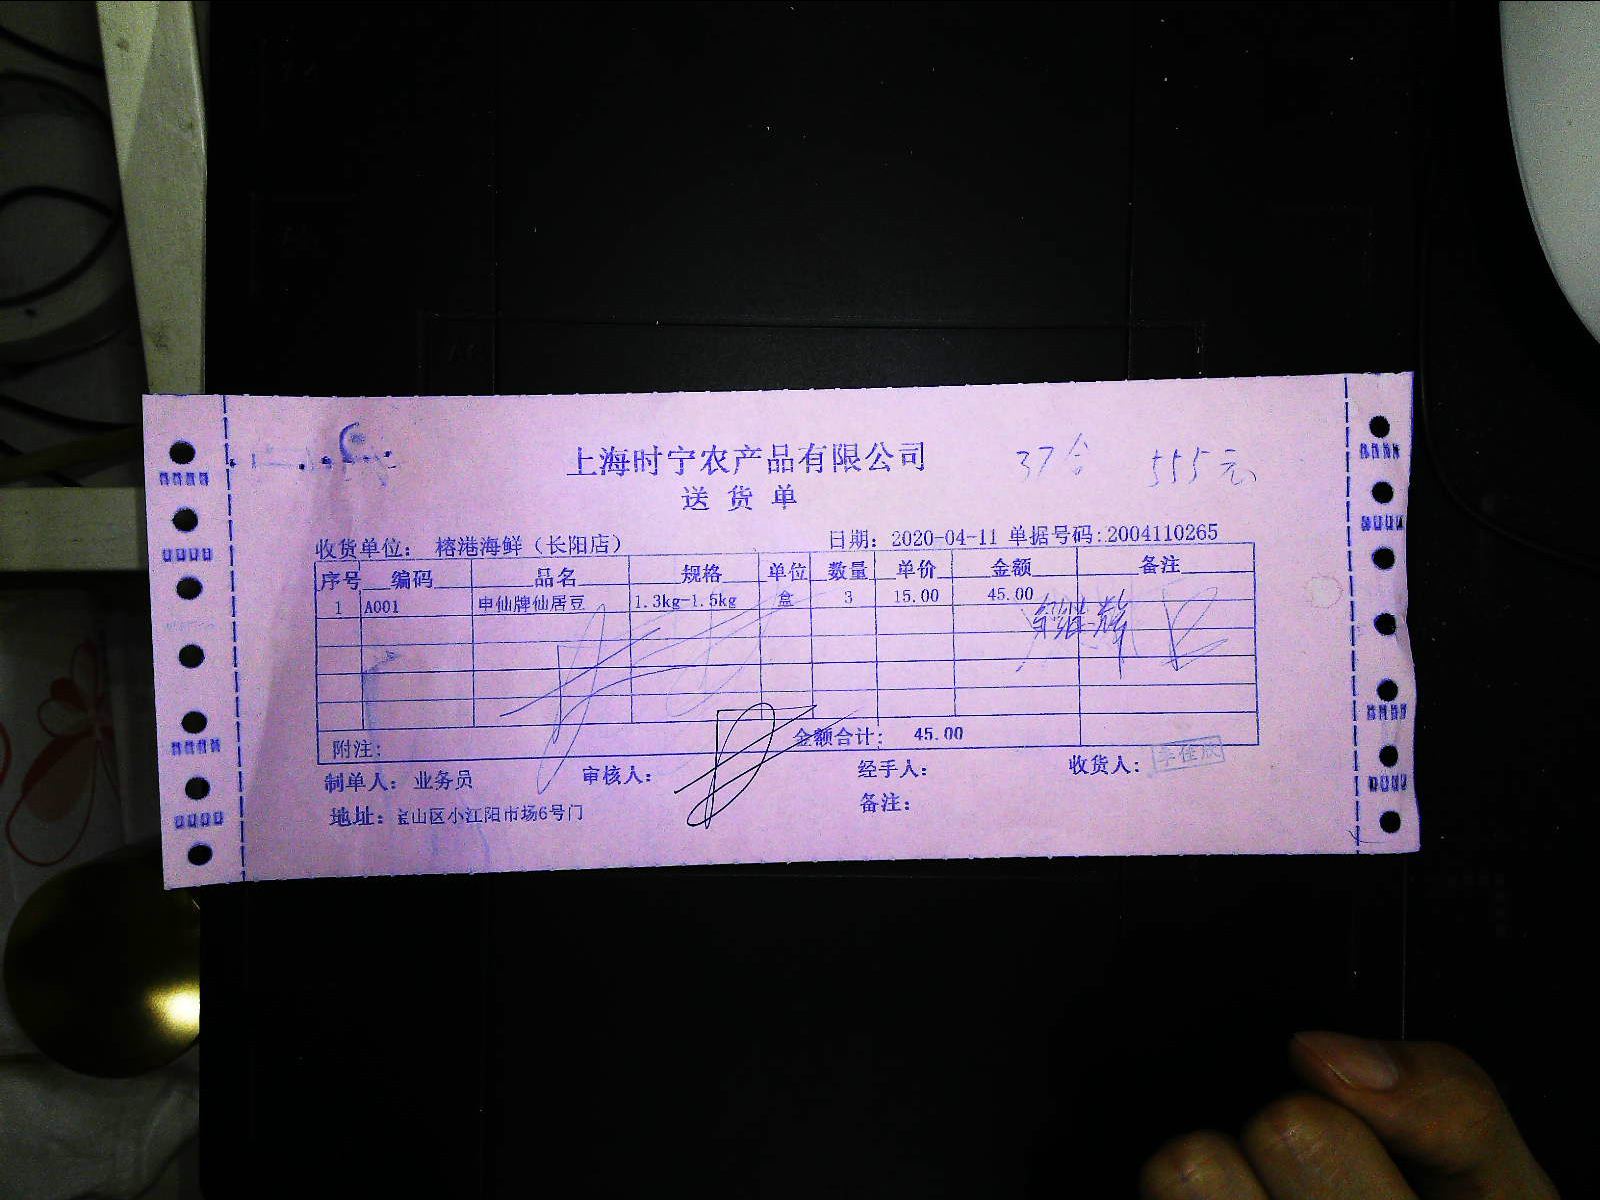 上海时宁农产品有限公司
37合 555元
送货单
收货单位: 榕港海鲜（长阳店） 日期: 2020-04-11 单据号码:2004110265
序号 编码 品名 规格 单位 数量 单价 金额 备注
1 A001 申仙牌仙居豆 1.3kg-1.5kg 盒 3 15.00 45.00
附注: 金额合计: 45.00
制单人: 业务员 审核人: 经手人: 收货人: 李佳欣
地址: 宝山区小江阳市场6号门 备注: